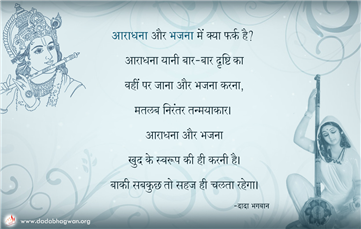 आराधना और भजना में क्या फर्क है?
आराधना यानी बार-बार दृष्टि का
वहीं पर जाना और भजना करना,
मतलब निरंतर तन्मयाकार।
आराधना और भजना
खुद के स्वरूप की ही करनी है।
बाकी सबकुछ तो सहज ही चलता रहेगा।
-दादा भगवान
www.dadabhagwan.org